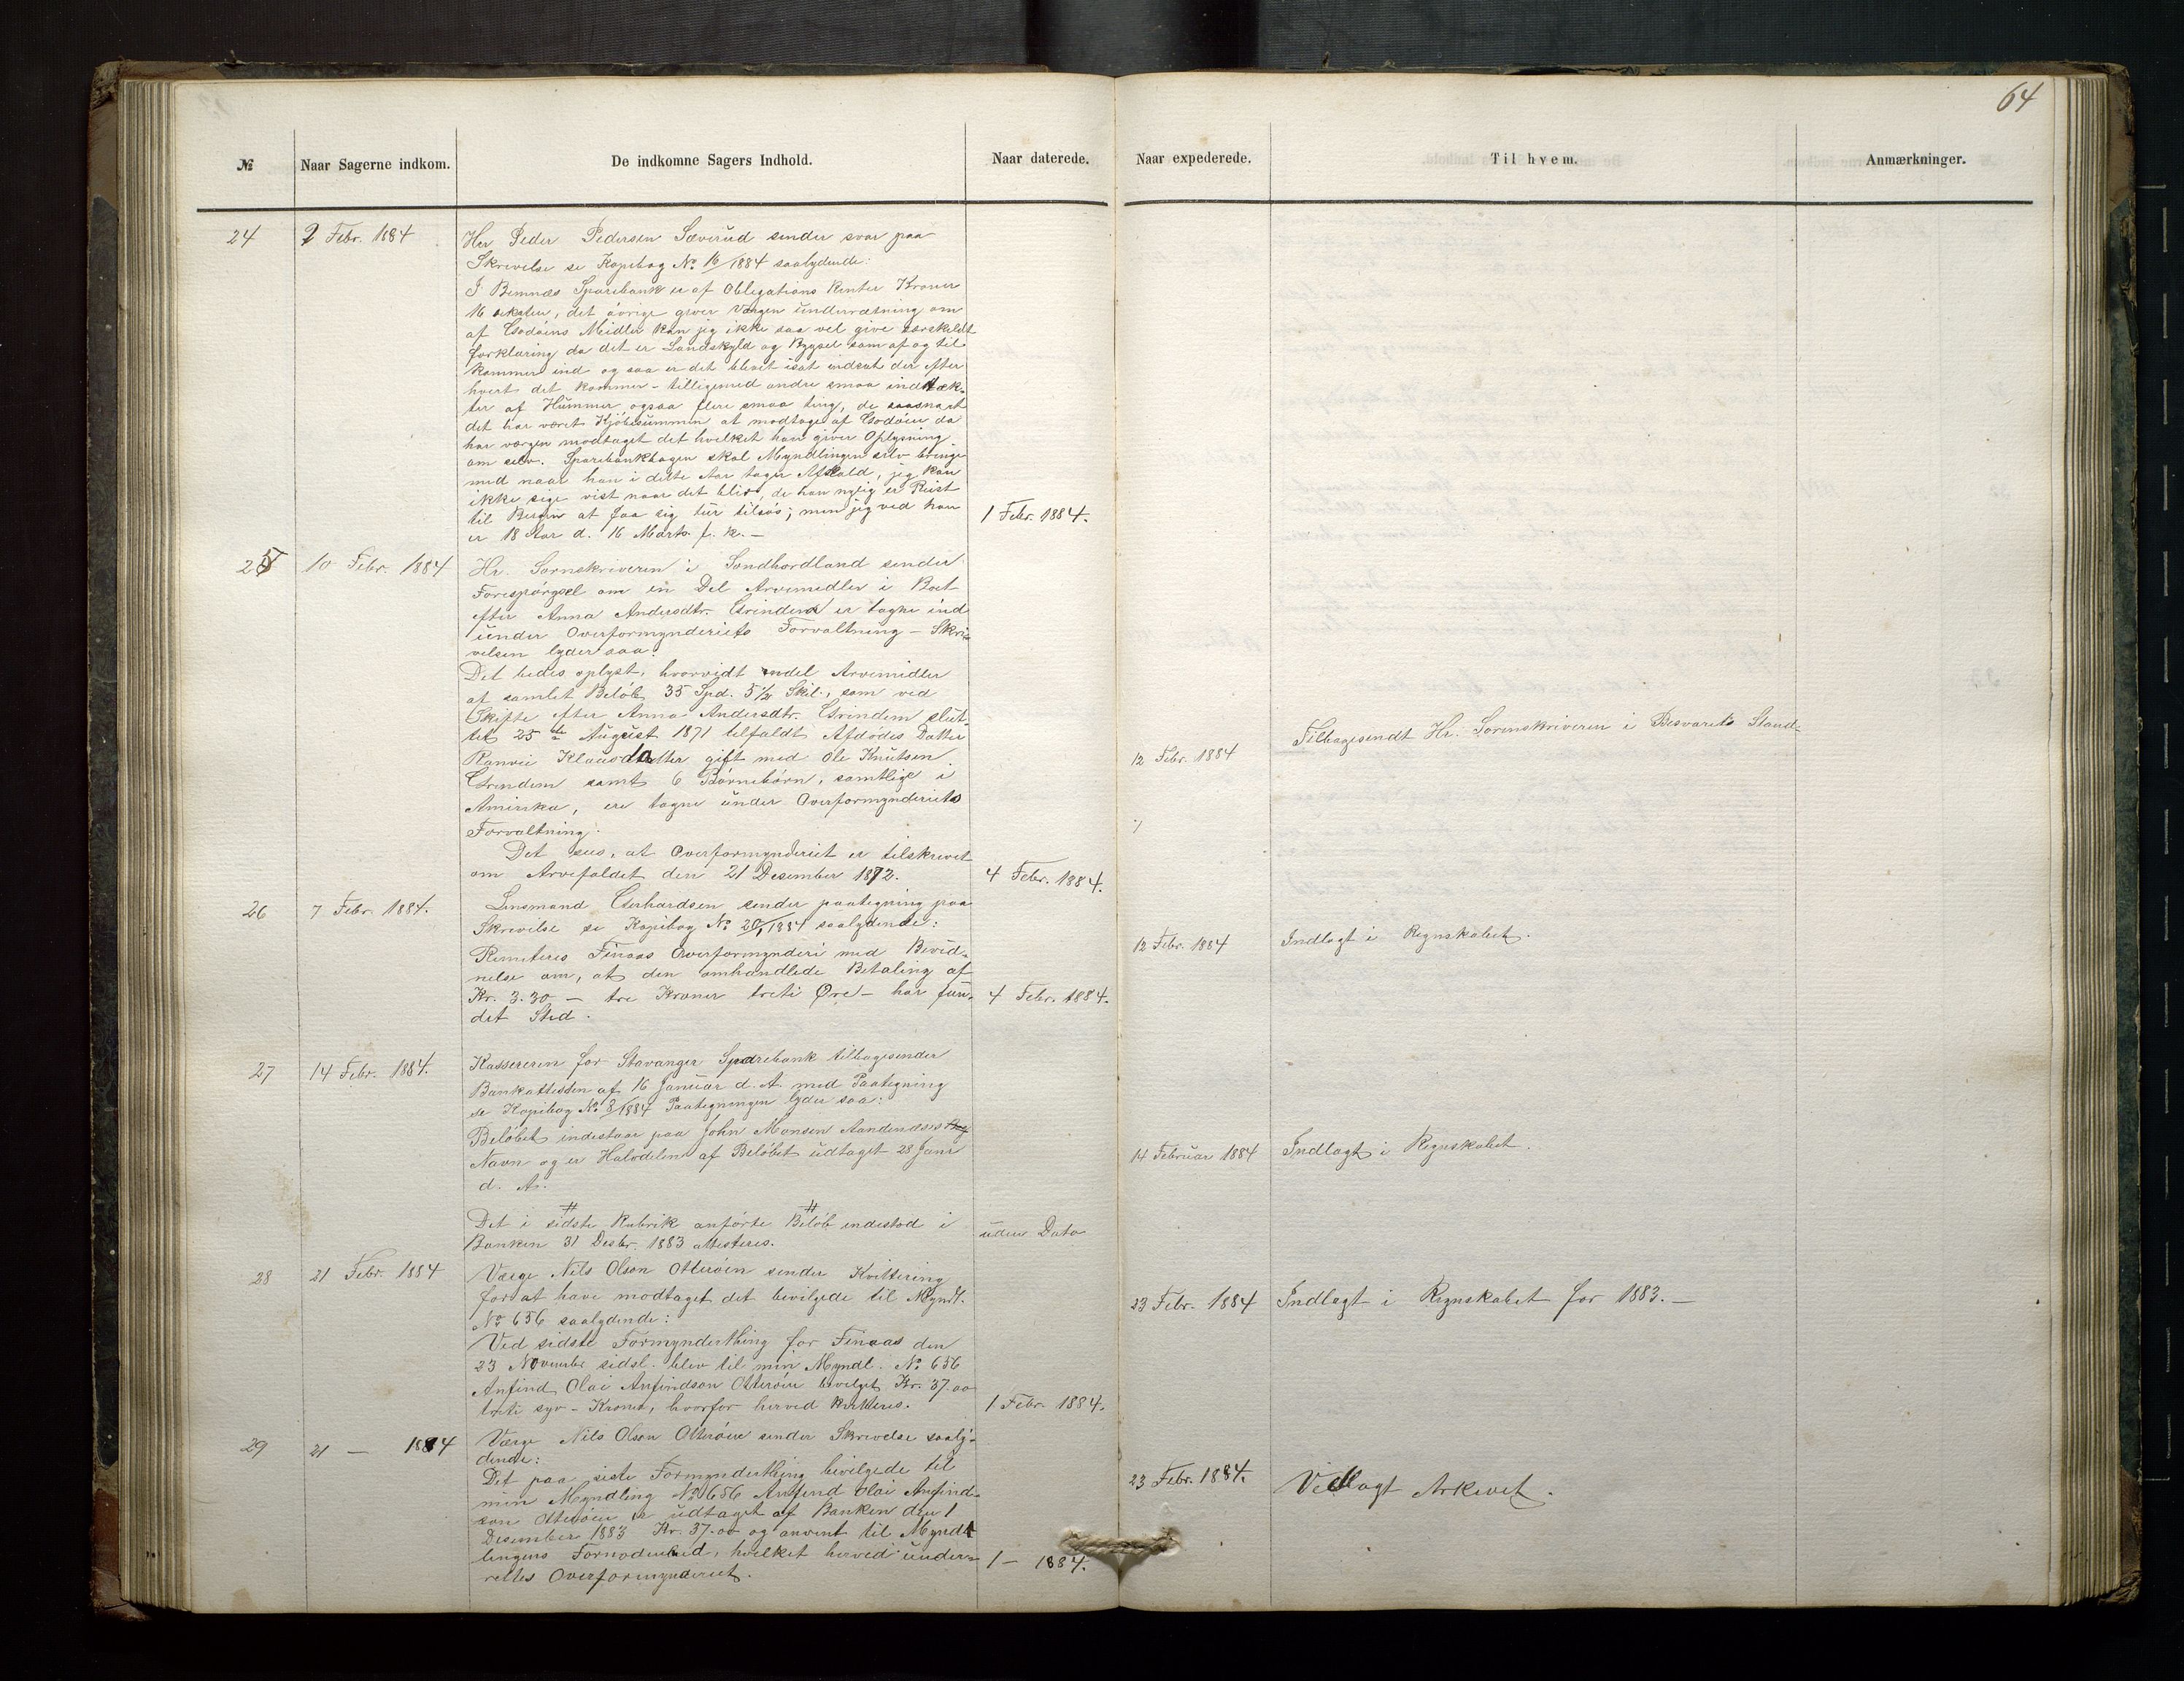 64
№ Naar Sagerne indkom. De indkomne Sagers Indhold. Naar daterede. Naar expederede. Til hvem. Anmærkninger.
24 2 Febr. 1884 Her Peder Pedersen Sæverud sender svar paa
Skrivelse se Kopibog No 16/1884 saalydende:
I Bremnæs Sparebank er af Obligations Renter Kroner
16 seksten, det øvrige giver Værgen underrætning om
af Godøens Meidler kan jeg ikke saa vel give særskeldt
forklaring da det er Landskyld og Bygsel som af og til
kommer ind og saa er det blevet isat indsat der efter
hvert det kommer - tilligemed andre smaa indtæk-
ter af Hummer, ogsaa flere smaa ting, de saasnart
det har været Kjøbesummen at modtage af Godøen da
har værgen modtaget det hvilket han giver Oplysning
om selv. Sparebankbogen skal Myndlingen selv bringe
med naar han i dette Aar tager Afskald, jeg kan
ikke sige vist naar det blir, de han nylig er Reist
til Bergen at faa sig tur tilsøs; men jeg ved han
er 18 Aar d. 16 Marts f. k. — 1 Febr. 1884.
25 10 Febr. 1884 Hr. Sornskriveren i Søndhordland sender
Forespørgsel om en Del Arvemidler i Boet
efter Anna Andersdtr. Grindem er tagne ind
under Overformynderiets Forvaltning - Skri-
velsen lyder saa:
Det bedes oplyst, hvorvidt endel Arvemidler
af samlet Beløb 35 Spd. 5½ Skil., som ved
Skifte efter Anna Andersdtr. Grindem slut-
tet 25de August 1871 tilfaldt Afdødes Datter
Ranvei Klausdatter gift med Ole Knutsen
Grindem samt 6 Børnebørn, samtlige i
Amerika, ere tagne under Overformynderiets
Forvaltning.
Det sees, at Overformynderiet er tilskrevet
om Arvefaldet den 21 Desember 1872. 4 Febr. 1884.
12 Febr. 1884 Tilbagesendt Hr. Sorenskriveren i Besvarets Stand-
26 7 Febr. 1884. Lensmand Gerhardsen sender paategning paa
Skrivelse se Kopibog No 20/1884 saalydende:
Remiteres Finaas Overformynderi med Bevid-
nelse om, at den omhandlede Betaling af
Kr. 3.30 - tre Kroner treti Øre - har fun-
det Sted. 4 Febr. 1884.
12 Febr. 1884 Indlagt i Regnskabet.
27 14 Febr. 1884. Kassereren for Stavanger Sparebank tilbagesender
Bankattesten af 16 Januar d. A. med Paategning
se Kopibog No 8/1884 Paategningen lyder saa:
Beløbet indestaar paa John Monsen Aandenæses
Navn og er Halvdelen af Beløbet udtaget 28 Janr
d. A.
14 Februar 1884 Indlagt i Regnskabet.
Det i sidste Rubrik anførte Beløb indestod i
Banken 31 Desbr. 1883 attesteres. uden Dato
28 21 Febr. 1884 Værge Nils Olson Otterøen sender Kvittering
for at have modtaget det bevilgede til Myndl.
No 656 saalydende:
Ved sidste Formynderthing for Finaas den
23 November sidsl. blev til min Myndl. No 656
Anfind Olai Anfindson Otterøen bevilget Kr. 37.00
treti syv - Kroner, hvorfor herved kvitteres. 1 Febr. 1884.
23 Febr. 1884 Indlagt i Regnskabet for 1883. —
29 21 — 1884 Værge Nils Olsen Otterøen sender Skrivelse saaly-
dende:
Det paa siste Formynderthing bevilgede til
min Myndling No 656 Anfind Olai Anfind-
son Otterøen er udtaget af Banken den 1
Desember 1883 Kr. 37.00 og anvent til Mynd-
lingens Fornødenhed, hvilket herved under-
rettes Overformynderiet. 1 — 1884.
23 Febr. 1884. Vedlagt Arkivet.